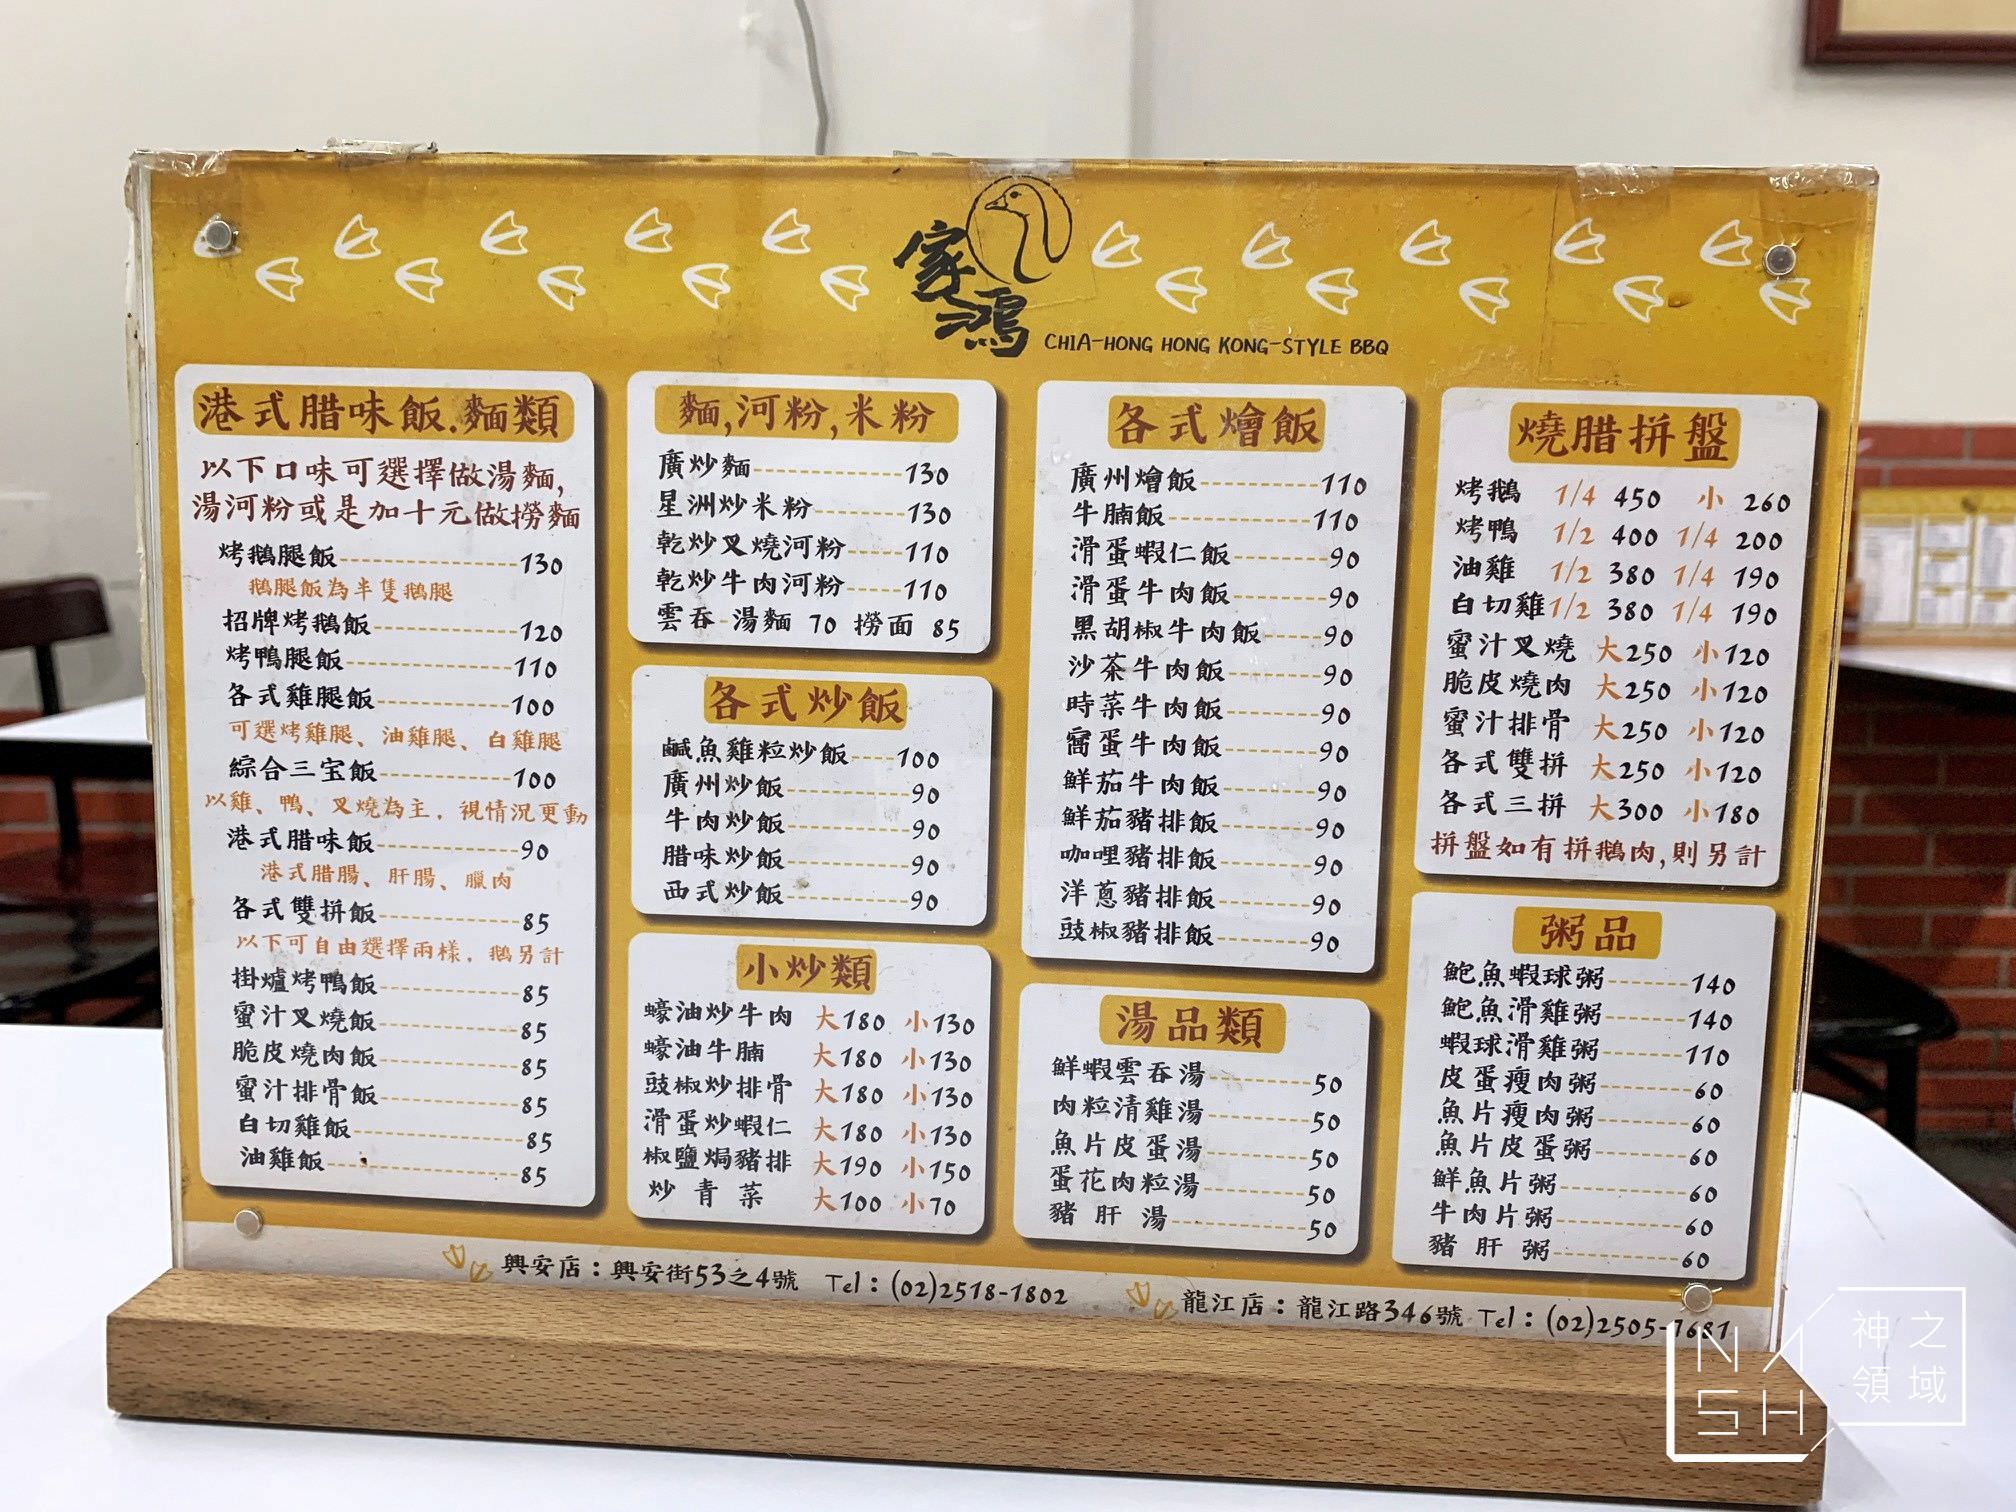 家鴻
CHIA-HONG HONG KONG-STYLE BBQ
港式腊味飯.麵類
以下口味可選擇做湯麵,
湯河粉或是加十元做撈麵
烤鵝腿飯 130
鵝腿飯為半隻鵝腿
招牌烤鵝飯 120
烤鴨腿飯 110
各式雞腿飯 100
可選烤雞腿、油雞腿、白雞腿
綜合三宝飯 100
以雞、鴨、叉燒為主,視情況更動
港式腊味飯 90
港式腊腸、肝腸、臘肉
各式雙拼飯 85
以下可自由選擇兩樣,鵝另計
掛爐烤鴨飯 85
蜜汁叉燒飯 85
脆皮燒肉飯 85
蜜汁排骨飯 85
白切雞飯 85
油雞飯 85
麵,河粉,米粉
廣炒麵 130
星洲炒米粉 130
乾炒叉燒河粉 110
乾炒牛肉河粉 110
雲吞-湯麵 70 撈面 85
各式炒飯
鹹魚雞粒炒飯 100
廣州炒飯 90
牛肉炒飯 90
腊味炒飯 90
西式炒飯 90
小炒類
蠔油炒牛肉 大180 小130
蠔油牛腩 大180 小130
豉椒炒排骨 大180 小130
滑蛋炒蝦仁 大180 小130
椒鹽焗豬排 大190 小150
炒青菜 大100 小70
各式燴飯
廣州燴飯 110
牛腩飯 110
滑蛋蝦仁飯 90
滑蛋牛肉飯 90
黑胡椒牛肉飯 90
沙茶牛肉飯 90
時菜牛肉飯 90
窩蛋牛肉飯 90
鮮茄牛肉飯 90
鮮茄豬排飯 90
咖哩豬排飯 90
洋蔥豬排飯 90
豉椒豬排飯 90
湯品類
鮮蝦雲吞湯 50
肉粒清雞湯 50
魚片皮蛋湯 50
蛋花肉粒湯 50
豬肝湯 50
燒腊拼盤
烤鵝 1/4 450 小 260
烤鴨 1/2 400 1/4 200
油雞 1/2 380 1/4 190
白切雞 1/2 380 1/4 190
蜜汁叉燒 大250 小120
脆皮燒肉 大250 小120
蜜汁排骨 大250 小120
各式雙拼 大250 小120
各式三拼 大300 小180
拼盤如有拼鵝肉,則另計
粥品
鮑魚蝦球粥 140
鮑魚滑雞粥 140
蝦球滑雞粥 110
皮蛋瘦肉粥 60
魚片瘦肉粥 60
魚片皮蛋粥 60
鮮魚片粥 60
牛肉片粥 60
豬肝粥 60
興安店:興安街53之4號 Tel:(02)2518-1802
龍江店:龍江路346號 Tel:(02)2505-1681
NASH
神之領域